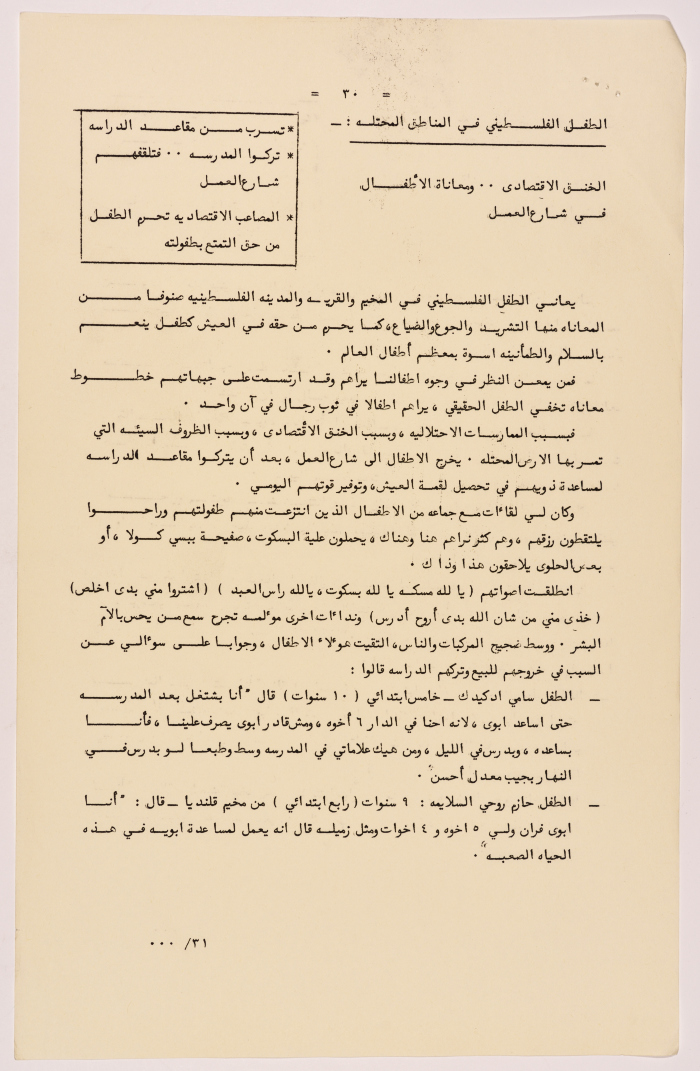 = ٣٠ =
الطفل الفلسطيني في المناطق المحتله : ـ
الخنق الاقتصادى ٠٠ ومعاناة الأطفال
في شارع العمل
* تسرب من مقاعد الدراسه
* تركوا المدرسه ٠٠ فتلقفهم
شارع العمل
* المصاعب الاقتصاديه تحرم الطفل
من حق التمتع بطفولته
يعاني الطفل الفلسطيني في المخيم والقريه والمدينه الفلسطينيه صنوفا من
المعاناه منها التشريد والجوع والضياع، كما يحرم من حقه في العيش كطفل ينعم
بالسلام والطمأنينه اسوة بمعظم أطفال العالم ٠
فمن يمعن النظر في وجوه اطفالنا يراهم وقد ارتسمت على جبهاتهم خطوط
معاناه تخفي الطفل الحقيقي ، يراهم اطفالا في ثوب رجال في آن واحد ٠
فبسبب الممارسات الاحتلاليه ، وبسبب الخنق الاقتصادى ، وبسبب الظروف السيئه التي
تمر بها الارض المحتله ٠ يخرج الاطفال الى شارع العمل ، بعد أن يتركوا مقاعد الدراسه
لمساعدة ذويهم في تحصيل لقمة العيش، وتوفير قوتهم اليومي ٠
وكان لي لقاءات مع جماعه من الاطفال الذين انتزعت منهم طفولتهم وراحوا
يلتقطون رزقهم ، وهم كثر نراهم هنا وهناك ، يحملون علبة البسكوت ، صفيحة ببسي كولا ، أو
بعض الحلوى يلاحقون هذا وذاك ٠
انطلقت اصواتهم ( يالله مسكه يا لله بسكوت ، يالله راس العبد ) ( اشتروا مني بدى اخلص)
( خذى مني من شان الله بدى أروح أدرس) ونداءات اخرى موءلمه تجرح سمع من يحس بالآم
البشر ٠ ووسط ضجيج المركبات والناس، التقيت هوءلاء الاطفال ، وجوابا على سوءالي عن
السبب في خروجهم للبيع وتركهم الدراسه قالوا :
ـ الطفل سامي ادكيدك ـ خامس ابتدائي ( ١٠ سنوات ) قال "أنا بشتغل بعد المدرسه
حتى اساعد ابوى ، لانه احنا في الدار ٦ أخوه ، ومش قادر ابوى يصرف علينا ، فأنا
بساعده ، وبدرس في الليل ، ومن هيك علاماتي في المدرسه وسط وطبعا لو بدرس في
النهار بجيب معدل أحسن" ٠
ـ الطفل حازم روحي السلايمه : ٩ سنوات ( رابع ابتدائي ) من مخيم قلنديا ـ قال : "أنا
ابوى فران ولي ٥ اخوه و ٤ اخوات ومثل زميله قال انه يعمل لمساعدة ابويه في هذه
الحياه الصعبه" ٠
٣١/ ٠٠٠